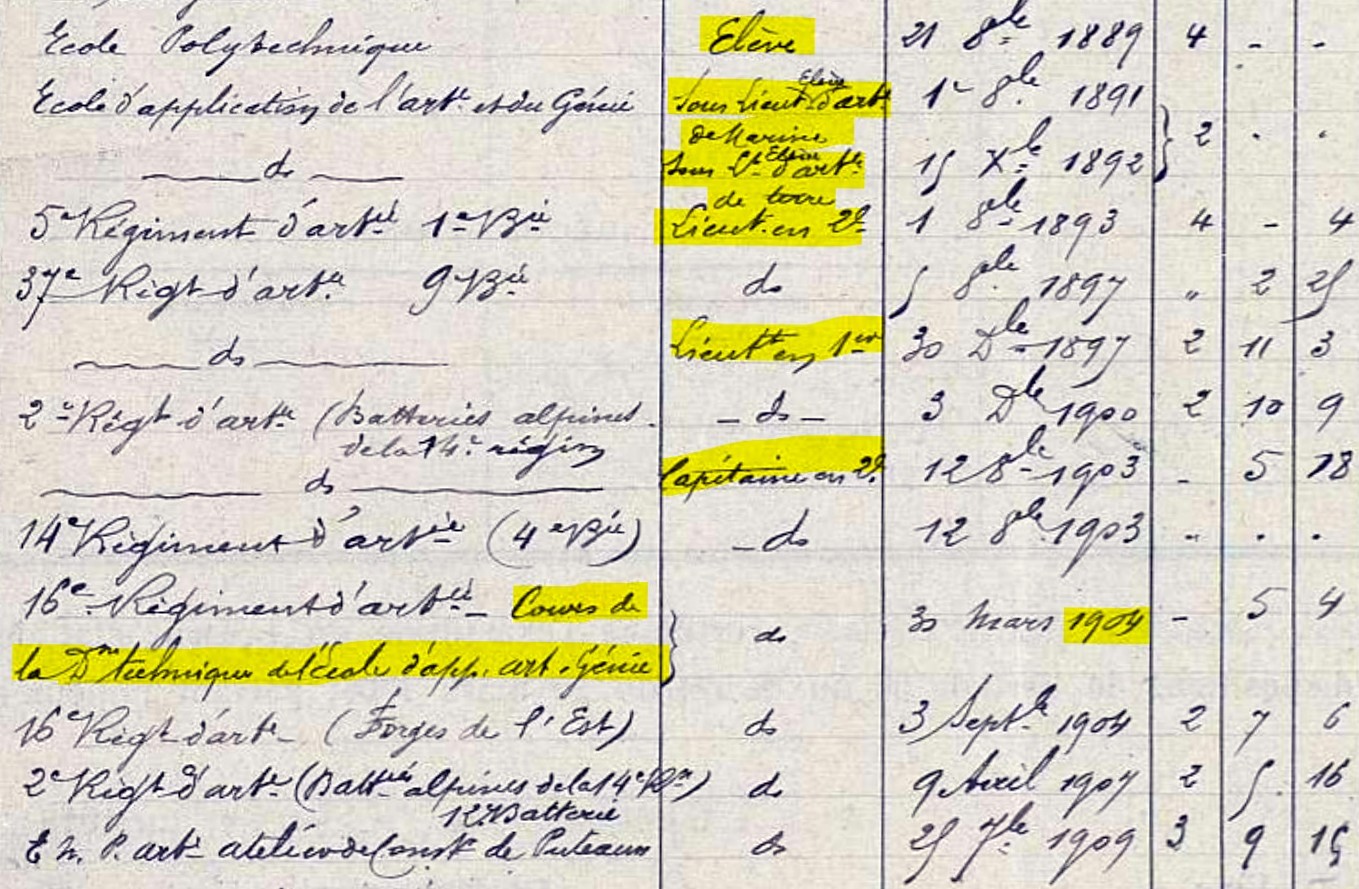 Ecole Polytechnique Elève 21 8bre 1889 4 - -
Ecole d'application de l'artie et du Génie Sous Lieut Elève d'artie 1er 8bre 1891
de Marine } 2 . .
do Sous Lt Elève d'artie 15 Xbre 1892
de terre
5e Régiment d'artie 1e Bie Lieut. en 2d 1 8bre 1893 4 - 4
37e Régt d'artie 9e Bie do 5 8bre 1897 " 2 25
do Lieutt en 1er 30 Dbre 1897 2 11 3
2e Régt d'artie (Batteries alpines do 3 Dbre 1900 2 10 9
de la 14e région
do Capitaine en 2d 12 8bre 1903 - 5 18
14e Régiment d'artie (4e Bie) do 12 8bre 1903 . . .
16e Régiment d'artie - Cours de
} do 30 Mars 1904 - 5 4
la Don technique de l'école d'app. art. Génie
16e Régt d'artie (Forges de l'Est) do 3 Septbre 1904 2 7 6
2e Régt d'artie (Battries alpines de la 14e Ron) do 9 Avril 1907 2 5 16
12e Batterie
E M. P. artie atelier de Constr de Puteaux do 25 7bre 1909 3 9 15